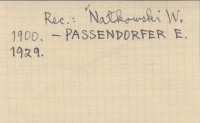 Rec.: Nałkowski W.
1900. – PASSENDORFER E.
1929.